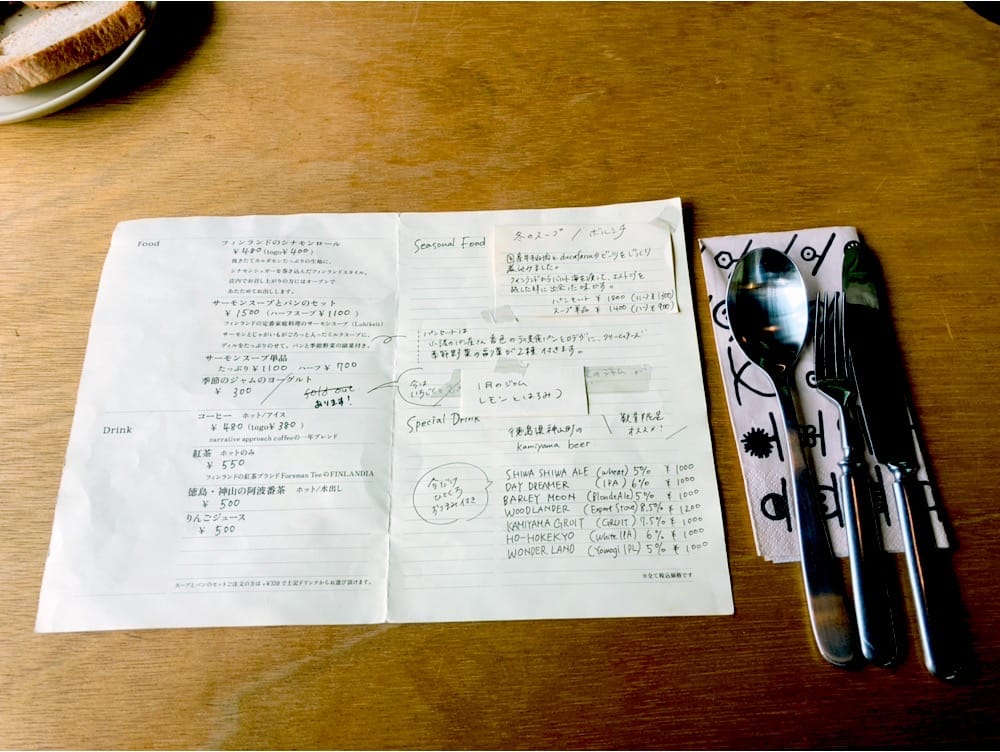 Food
フィンランドのシナモンロール
¥480 (togo¥400)
挽きたてカルダモンたっぷりの生地に、
シナモンシュガーを巻き込んだフィンランドスタイル。
店内でお召し上がりの方にはオーブンで
あたためてお出しします。
サーモンスープとパンのセット
¥1500 (ハーフスープ¥1100)
フィンランドの定番家庭料理のサーモンスープ (Lohikeit)
サーモンとじゃがいもがごろっと入ったミルクスープに、
ディルをたっぷりのせて。パンと季節野菜の副菜付き。
サーモンスープ単品
たっぷり¥1100 ハーフ¥700
季節のジャムのヨーグルト
¥300
sold out
あります!
Drink
コーヒー ホット/アイス
¥480 (togo¥380)
narrative approach coffeeの一年ブレンド
紅茶 ホットのみ
¥550
フィンランドの紅茶ブランドForsman TeeのFINLANDIA
徳島・神山の阿波番茶 ホット/水出し
¥500
りんごジュース
¥500
スープとパンのセットご注文の方は+¥330で上記ドリンクからお選び頂けます。
Seasonal Food
冬のスープ / ボルシチ
煮込みました。
旅した時に出会った味です。
パンセット ¥1800 (ハーフ¥1300)
スープ単品 ¥1400 (ハーフ¥900)
パンセットは
季節野菜の副菜が2種付きます。
今は
1月のジャム
レモンとはるみ
Special Drink
徳島県神山町の
kamiyama beer
数量限定
オススメ!
今だけ
ひとくち
おつまみ付き
SHIWA SHIWA ALE (wheat) 5% ¥1000
DAY DREAMER (IPA) 6% ¥1000
BARLEY MOON (Blonde Ale) 5% ¥1000
WOODLANDER (Export Stout) 8.5% ¥1200
KAMIYAMA GRUIT (GRUIT) 7.5% ¥1000
HO-HOKEKYO (White IPA) 6% ¥1000
WONDER LAND (Yomogi IPL) 5% ¥1000
※全て税込価格です